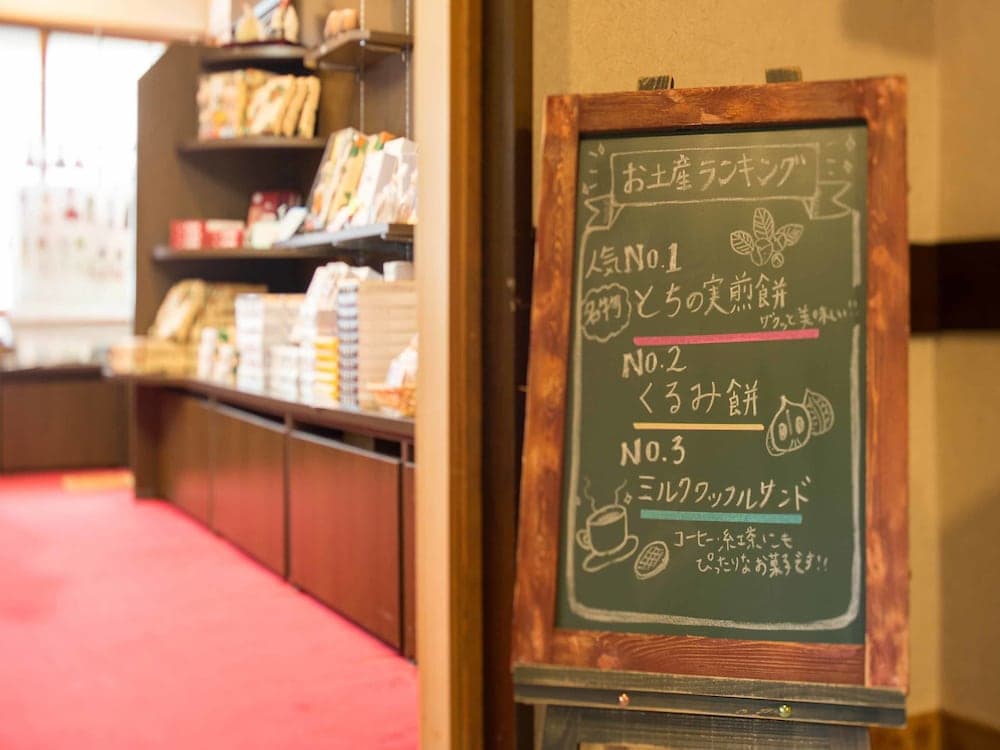 お土産ランキング
人気No.1
名物 とちの実煎餅
ザクッと美味しい!!
No.2
くるみ餅
No.3
ミルクワッフルサンド
コーヒー・紅茶にも
ぴったりなお菓子です!!